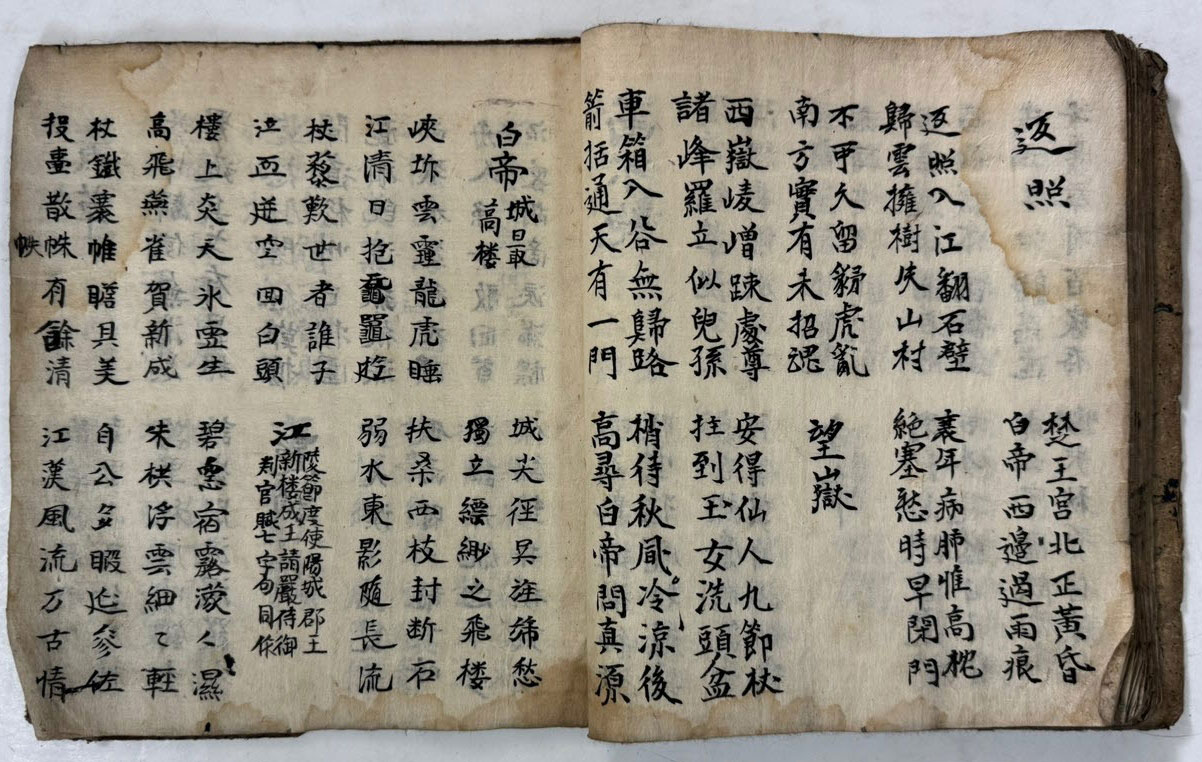 返照
楚王宮北正黃昏
白帝西邊過雨痕
返照入江翻石壁
歸雲擁樹失山村
衰年病肺惟高枕
絕塞愁時早閉門
不可久留豺虎亂
南方實有未招魂
望嶽
西嶽崚嶒竦處尊
諸峰羅立似兒孫
安得仙人九節杖
拄到玉女洗頭盆
車箱入谷無歸路
箭括通天有一門
稍待秋風冷涼後
高尋白帝問真源
白帝城最高楼
城尖徑昃旌旆愁
獨立縹緲之飛楼
峽坼雲霾龍虎睡
江清日抱黿鼉遊
扶桑西枝封断石
弱水東影随長流
杖藜歎世者誰子
泣血迸空回白頭
江陵節度使陽城郡王
新楼成王請嚴侍御
判官賦七字句同作
楼上炎天氷雪生
高飛燕雀賀新成
碧窓宿霧濛々濕
朱栱浮雲細々輕
杖鐵褰帷瞻具美
投壷散帙有餘清
帙
自公多暇延參佐
江漢風流万古情